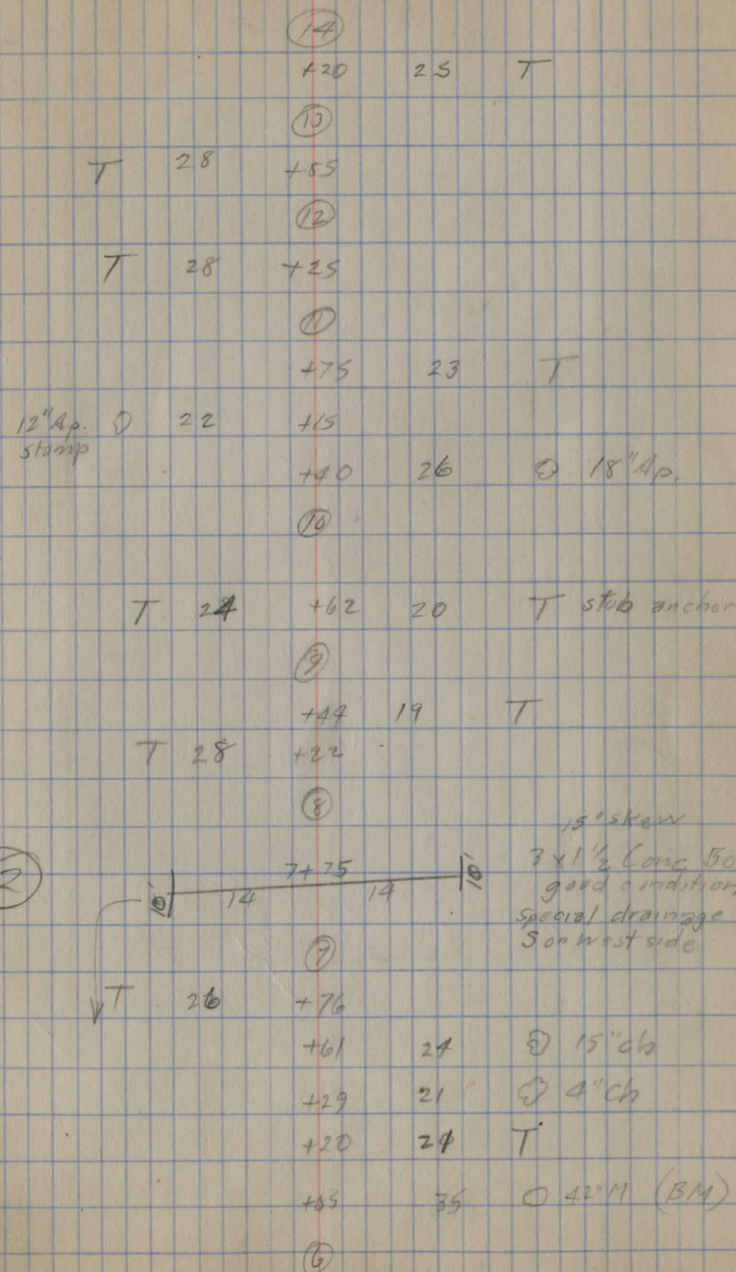 14
+20 25 T
13
T 28 +85
12
T 28 +25
11
+75 23 T
12" Ap. 22 +15
stomp
+40 26 18" Ap.
10
T 24 +62 20 T stub anchor
9
+44 19 T
T 28 +22
8
15° skew
7+75 3 x 1 1/2 Conc Bo
10' 14 14 10' good condition
2
special drainage
S on west side
7
T 26 +76
+61 24 15" ch
+29 21 4" Ch
+20 24 T
+05 35 42" M (BM)
6